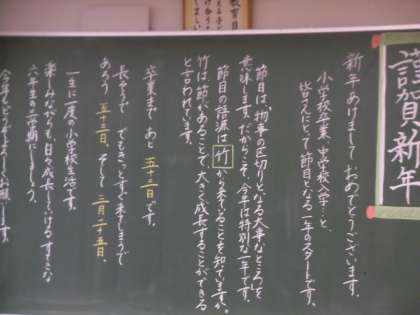 謹賀新年
新年あけまして おめでとうございます。
小学校卒業、中学校入学…と
皆さんにとって節目となる一年のスタートです。
節目は、物事の区切りとなる大事なところを
意味します。だからこそ、今年は特別な一年です。
節目の語源は竹から来ていることを知っていますか。
竹は節があることで、大きく成長することができる
と言われています。
卒業まで あと 五十三日です。
長そうで でもきっとすぐ来てしまうで
あろう 五十三日、そして 三月二十五日。
一生に一度の小学校生活です。
楽しみながらも、日々成長していける すてきな
六年生の三学期にしましょう。
今年もどうぞよろしくお願いします。
教育目